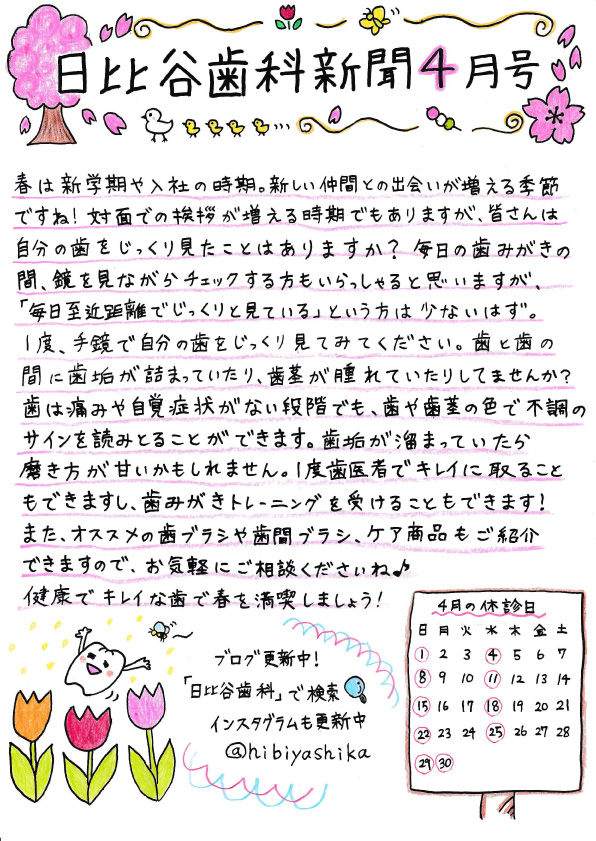 日比谷歯科新聞4月号
春は新学期や入社の時期。新しい仲間との出会いが増える季節
ですね！対面での挨拶が増える時期でもありますが、皆さんは
自分の歯をじっくり見たことはありますか？毎日の歯みがきの
間、鏡を見ながらチェックする方もいらっしゃると思いますが、
「毎日至近距離でじっくりと見ている」という方は少ないはず。
1度、手鏡で自分の歯をじっくり見てみてください。歯と歯の
間に歯垢が詰まっていたり、歯茎が腫れていたりしてませんか？
歯は痛みや自覚症状がない段階でも、歯や歯茎の色で不調の
サインを読みとることができます。歯垢が溜まっていたら
磨き方が甘いかもしれません。1度歯医者でキレイに取ること
もできますし、歯みがきトレーニングを受けることもできます！
また、オススメの歯ブラシや歯間ブラシ、ケア商品もご紹介
できますので、お気軽にご相談くださいね♪
健康でキレイな歯で春を満喫しましょう！
ブログ更新中！
「日比谷歯科」で検索
インスタグラムも更新中
@hibiyashika
4月の休診日
日 月 火 水 木 金 土
1 2 3 4 5 6 7
8 9 10 11 12 13 14
15 16 17 18 19 20 21
22 23 24 25 26 27 28
29 30